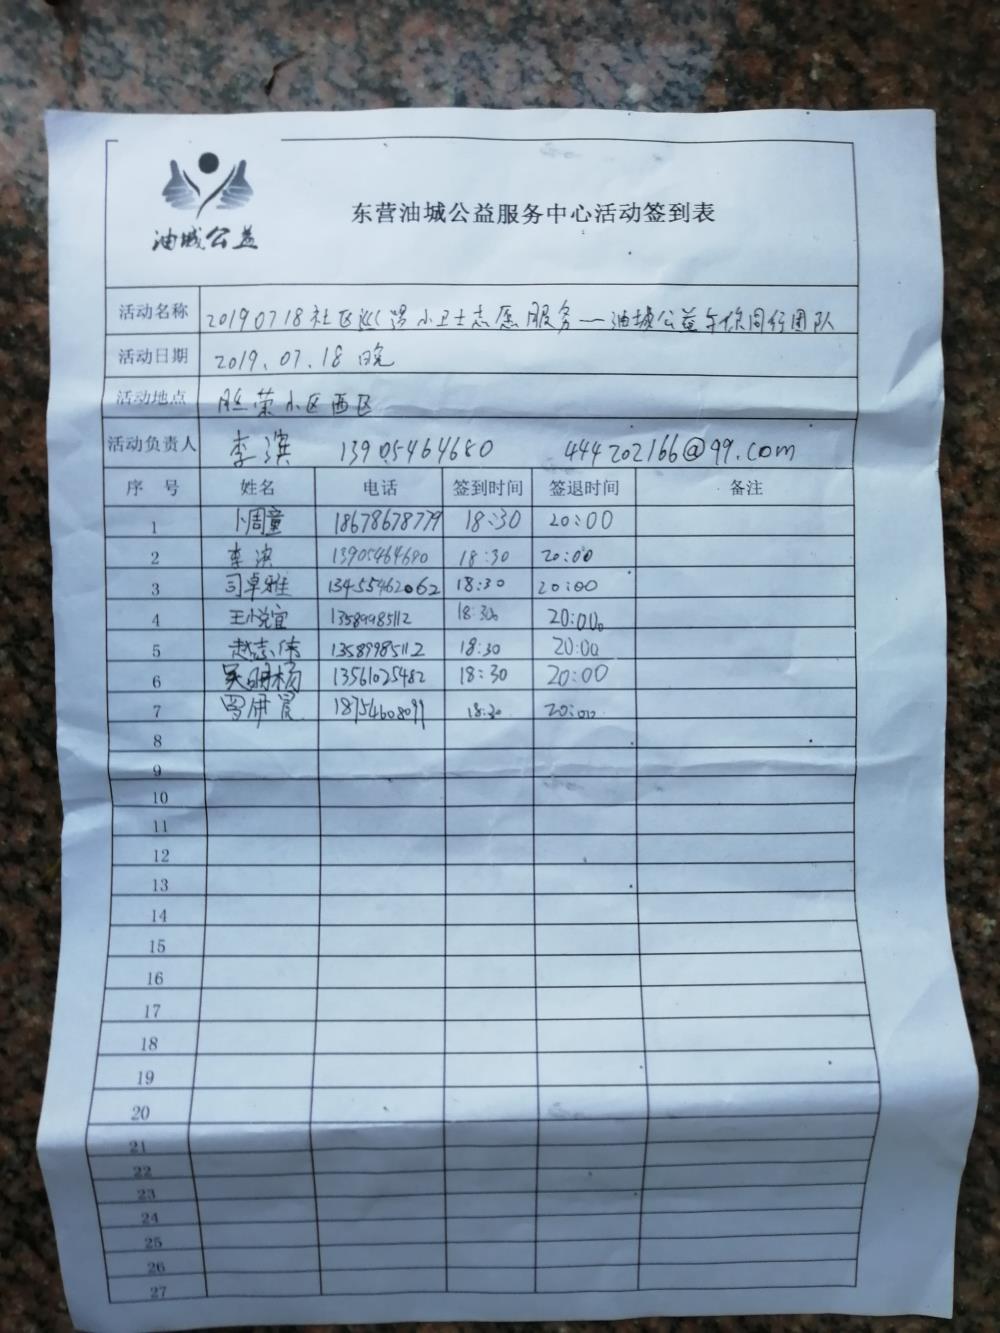 油城公益
东营油城公益服务中心活动签到表
活动名称 20190718社区巡逻小卫士志愿服务—油城公益与你同行团队
活动日期 2019.07.18 晚
活动地点 胜荣小区西区
活动负责人 李滨 13905464680 444202166@qq.com
序号 姓名 电话 签到时间 签退时间 备注
1 卜周童 18678678779 18:30 20:00
2 李滨 13905464680 18:30 20:00
3 司卓雅 13455462062 18:30 20:00
4 王悦宜 13589985112 18:30 20:00
5 赵志伟 13589985112 18:30 20:00
6 吴明杨 13561025482 18:30 20:00
7 18754608099 18:30 20:00
8
9
10
11
12
13
14
15
16
17
18
19
20
21
22
23
24
25
26
27